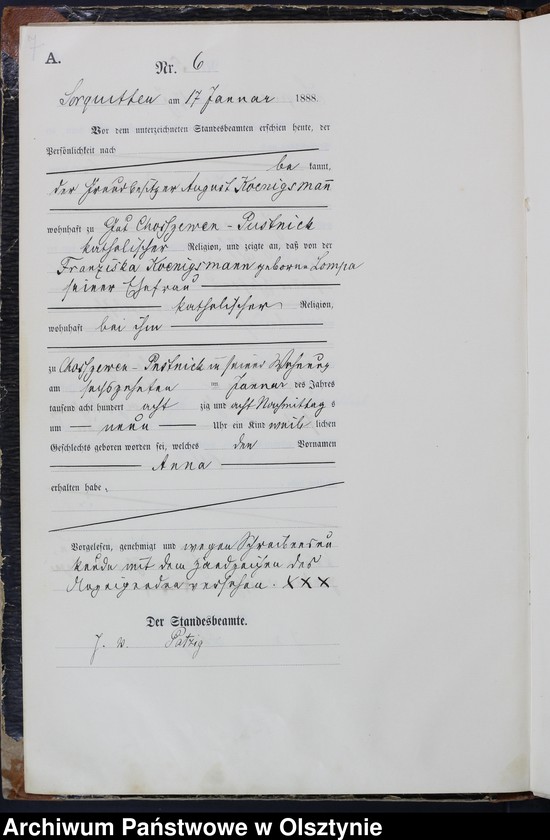 A.
Nr. 6
Sorquitten am 17 Januar 1888.
Vor dem unterzeichneten Standesbeamten erschien heute, der
Persönlichkeit nach
be kannt,
der August Koenigsmann
wohnhaft zu Gut Choszewen - Pustnick
katholischer Religion, und zeigte an, daß von der
Franziska Koenigsmann geborne Lompa
seiner Ehefrau
katholischer Religion,
wohnhaft bei ihm
zu Choszewen - Pustnick in seiner Wohnung
am sechszehnten im Januar des Jahres
tausend acht hundert acht zig und acht Nachmittag s
um neun Uhr ein Kind weib lichen
Geschlechts geboren worden sei, welches den Vornamen
Anna
erhalten habe.
Vorgelesen, genehmigt und wegen Schreibensun
kunde mit dem Handzeichen des
Anzeigenden versehen. XXX
Der Standesbeamte.
J. v. Patzig
Archiwum Państwowe w Olsztynie